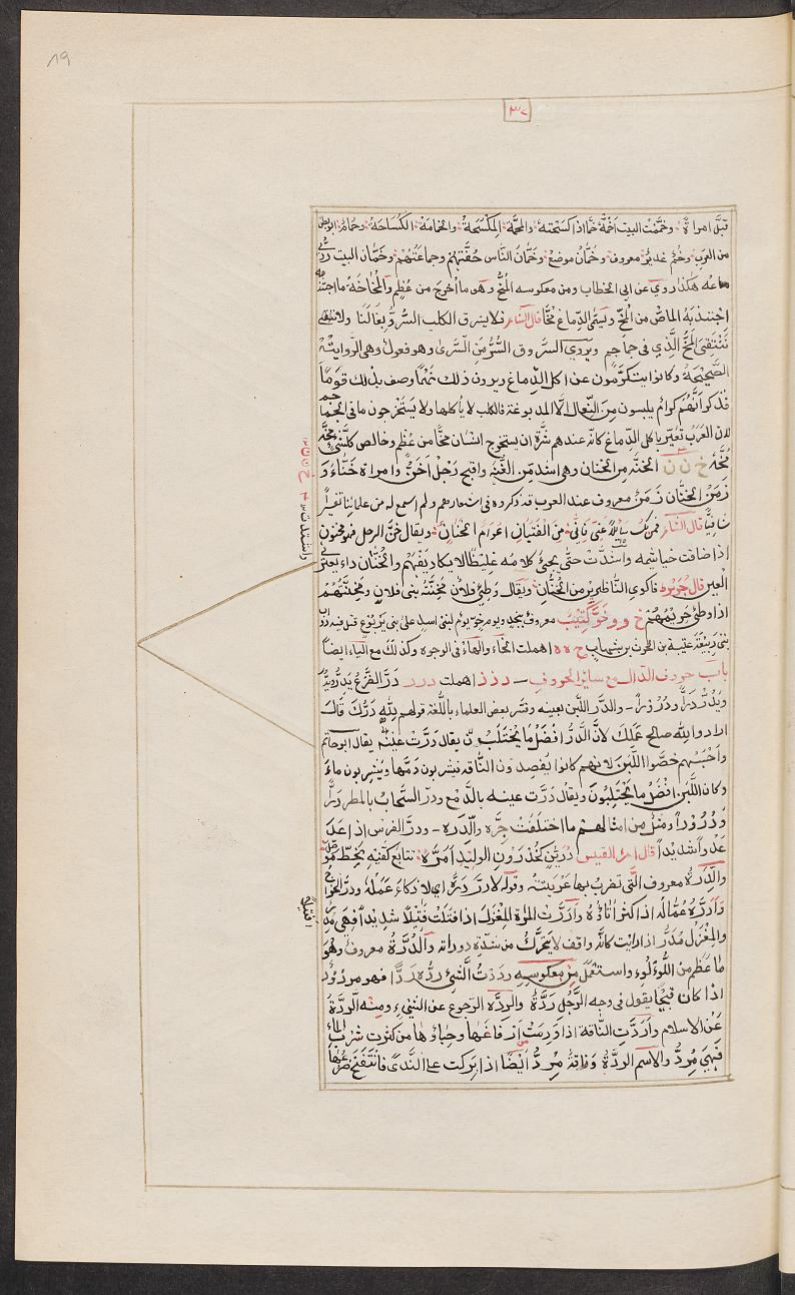 ١٩
٣٧
قبل امراة وخممت البيت اخمه خما اذا كسحته والمخمة المكسحة والخمامة الكساحة وخمام
من العرب وخم غدير معروف وخمان موضع وخمان الناس خفتهم وجماعتهم وخمان البيت ردى
متاعه هكذا روى عن ابى الخطاب ومن معكوسه المخ وهو ما اخرج من عظم والمخاخة ما
اجتذبه الماص من المخ ويسمى الدماغ مخا قال الشاعر فلا يسرق الكلب السرو نعالنا ولا
ننتقى المخ الذى فى جماجم ويروى السروق السرو من السرى وهو فعول وهى الرواية
الصحيحة وكانوا يتكرمون عن اكل الدماغ ويرون ذلك نهما وصف بذلك قوما
فذكر انهم كرام يلبسون من النعال الا المدبوغة فالكلب لا ياكلها ولا يستخرجون ما فى الجماجم
لان العرب تعير باكل الدماغ كانه عندهم شره ان يستخرج انسان مخا من عظم وخالص كل شى
مخه خ ن ن الخنة من الخنان وهى اشد من الغنة واقبح رجل اخن وامراة خناء و
زمن الخنان زمن معروف عند العرب قد ذكروه فى اشعارهم ولم اسمع له من علمائنا تفسيرا
شافيا قال الشاعر فمن يك سائلا عنى فانى من الفتيان اعوام الخنان ويقال خن الرجل فهو مخنون
اذا ضاقت خياشمه واشتدت حتى يجئ كلامه غليظا لا يكاد يفهم والخنان داء يعترى
العير قال جرير فاكوى الناظرين من الخنان ويقال وطئ فلان مخنة بنى فلان ومخنتهم
اذا وطئ حريمهم خ و و خو كثيب معروف بنجد ويوم خو يوم لبنى اسد على بنى يربوع قتل فيه
بنى ربيعة عتيبة بن الحرث بن شهاب خ ه ه اهملت الخاء والهاء فى الوجوه وكذلك مع الياء ايضا
باب حروف الدال مع سائر الحروف د ذ ذ اهملت د ر ر در الضرع يدر ويدر
ويدر درا ودرورا والدر اللبن بعينه وفسر بعض العلماء باللغة قولهم لله درك قال
ارادوا لله صالح عملك لان الدر افضل ما يحتلب يقال درت عينه يقال ابو حاتم
واحسبهم خصوا اللبن لانهم كانوا يفصدون الناقة فيشربون دمها ويشربون ماء
وكان اللبن افضل ما يحتلبون ويقال درت عينه بالدمع ودر السحاب بالمطر درا
ودرورا ومثل من امثالهم ما اختلفت جرة والدرة ودر الفرس اذا عدا
عدوا شديدا قال امرؤ القيس درير كخذروف الوليد امره تتابع كفيه بخيط موصل
والدرة معروف التى تضرب بها عربيته وقوله لا در دره اى لا زكا عمله ودر الخراج
وادره عماله اذا كثر اتاؤه وادرت المراة المغزل اذا فتلت فتلا شديدا فهى مدر
والمغزل مدر اذا رايت كانه واقف لا يتحرك من شدة دورانه والدرة معروف وهو
ما عظم من اللؤلوء واستعمل من معكوسه رددت الشىء رده ردا فهو مردود
اذا كان قبيحا يقول فى وجه الرجل ردة والردة الرجوع عن الشىء ومنه الردة
عن الاسلام واردت الناقة اذا ورمت ارفاغها وحياؤها من كثرت شرب الماء
فهى مرد والاسم الردة وناقة مرد ايضا اذا بركت على الندى فانتفخ ضرعها
واشتدت
فتيلا